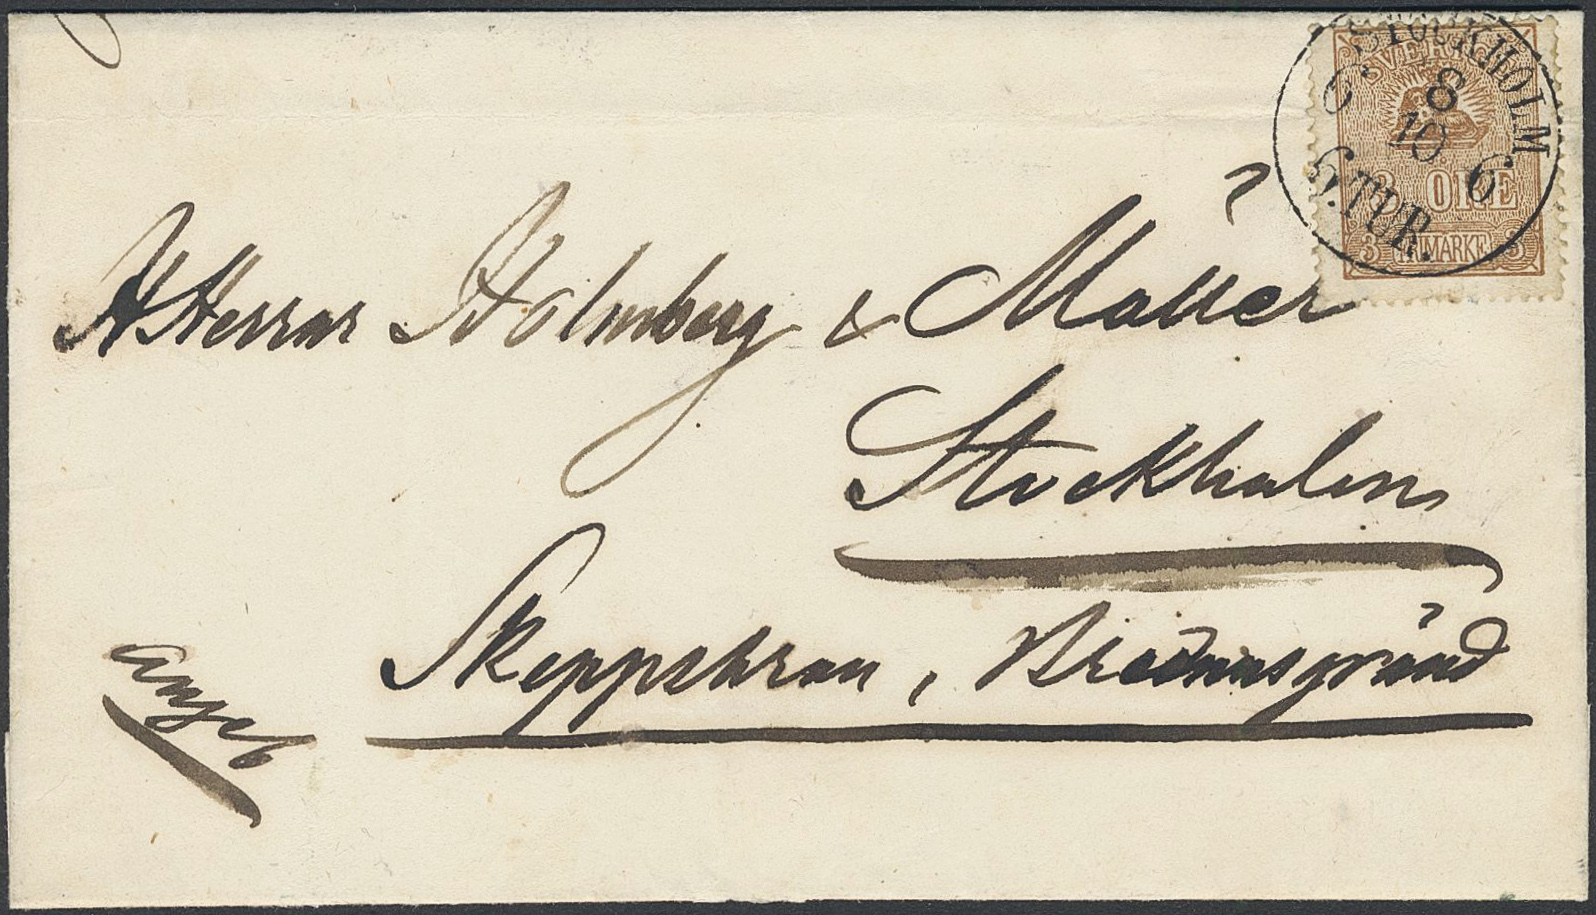 STOCKHOLM
6 8 6
10
6.TUR.
SVERIGE
3 ÖRE
3 FRIMÄRKE 3
HHerrar Holmberg & Möller
Stockholm
Skeppsbron, Bredmansgränd